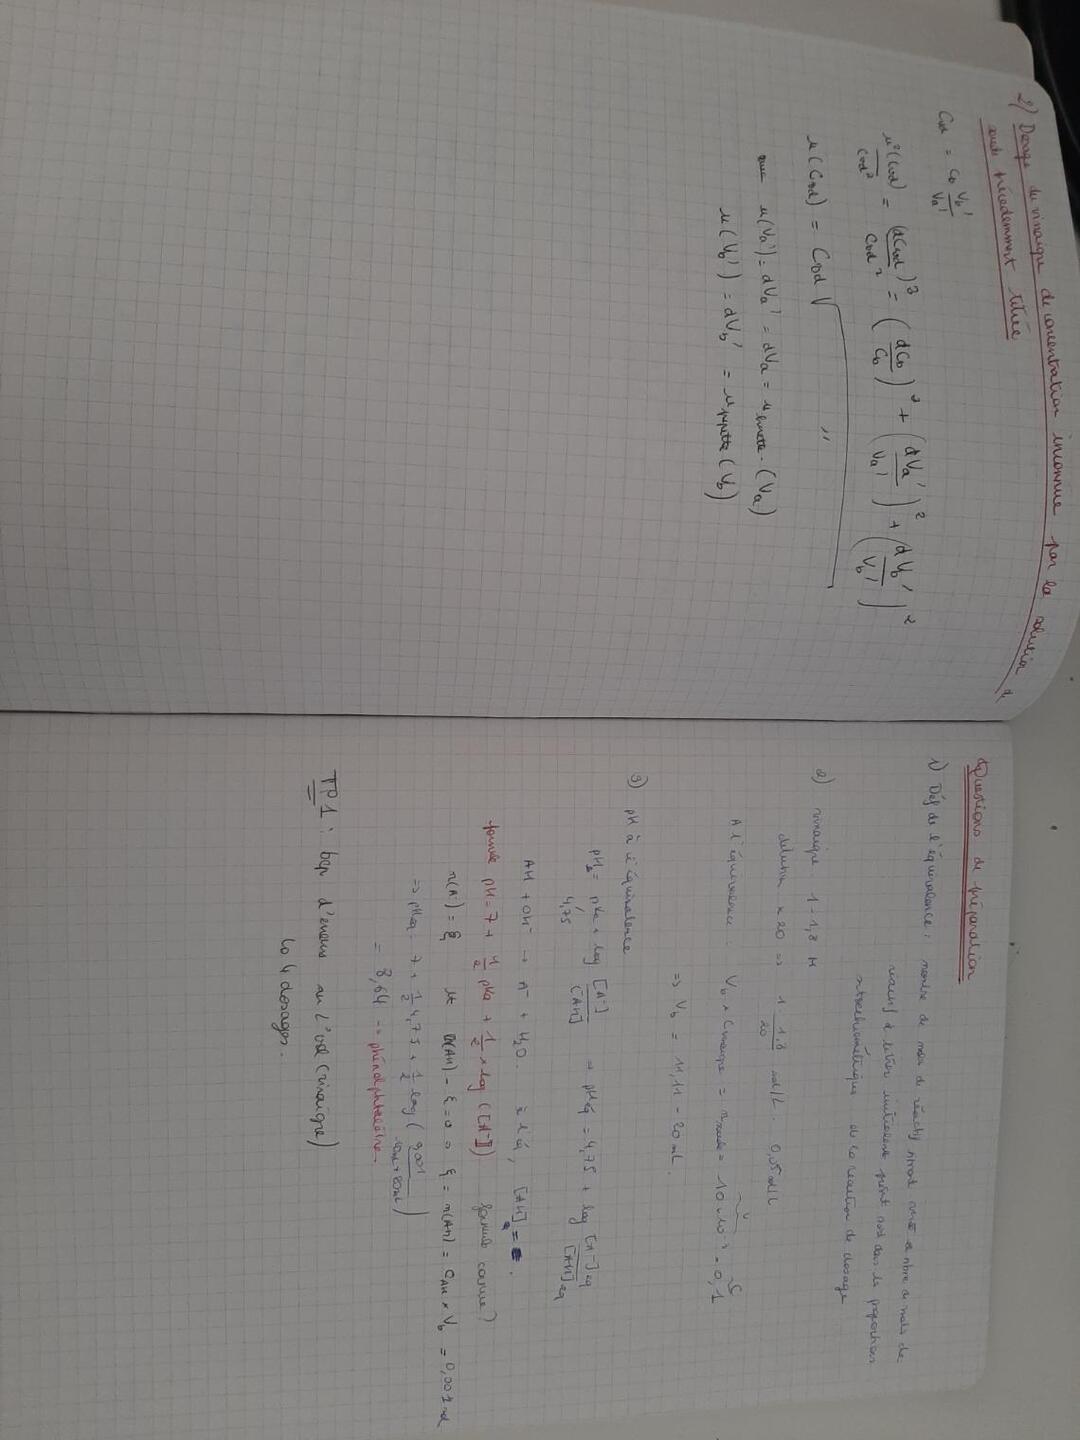 2) Dosage du vinaigre de concentration inconnue par la solution
précédemment titrée
Cod = Cb Vb' / Va'
u²(Cod) / Cod² = (dCod)² / Cod² = (dCb / Cb)² + (dVa' / Va')² + (dVb' / Vb')²
u(Cod) = Cod √ "
avec u(Va') = dVa' = dVa = u burette (Va)
u(Vb') = dVb' = u pipette (Vb)
Questions de préparation
1) Déf de l'équivalence : nombre de mols de réactif titrant
réactif à titrer initialement sont dans les proportions
stoechiométriques de la réaction de dosage
2) vinaigre 1 - 1,8 M
dilution x 20 => 1 - 1,8 / 20 mol/L. 0,05 mol/L
A l'équivalence.
=> Vb = 11,11 - 20 mL.
3) pH à l'équivalence
pH = pKa + log [A-] / [AH] => pHéq = 4,75 + log [A-]eq / [AH]eq
4,75
AH + OH- → A- + H2O. à l'éq, [AH] =
formule pH = 7 + 1/2 pKa + 1/2 x log ([A-]) formule connue)
n(A-) = ξ et n(AH) - ξ = 0 => ξ = n(AH) = CAH x Vb = 0,001 mol
=> pHeq = 7 + 1/2 4,75 + 1/2 log ( 0,001 / )
= 8,64 → phénolphtaléine.
TP1 : bcp d'erreurs sur L'vol (vinaigre)
4 dosages.